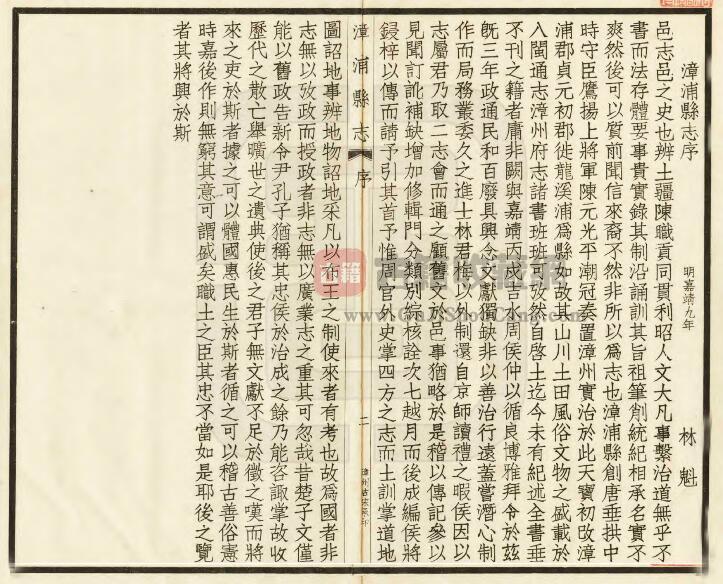 漳浦縣志序
明嘉靖九年 林魁
邑志邑之史也辨土疆陳職貢同貫利昭人文大凡事繫治道無乎不
書而法存體要事貴實錄其制沿誦訓其旨祖筆削統紀相承名實不
爽然後可以質前聞信來裔不然非所以爲志也漳浦縣創唐垂拱中
時守臣鷹揚上將軍陳元光平潮冦奏置漳州實治於此天寶初改漳
浦郡貞元初郡徙龍溪浦爲縣如故其山川土田風俗文物之盛載於
入閩通志漳州府志諸書班班可攷然自啓土迄今未有紀述全書垂
不刊之籍者庸非闕與嘉靖丙戍吉水周侯仲以循良博雅拜令於茲
旣三年政通民和百廢具興念文獻獨缺非以善治行遠蓋嘗潛心制
作而局務叢委久之進士林君梅以外制還自京師讀禮之暇侯因以
志屬君乃取二志會而通之顧舊文於邑事猶略於是稽以傳記參以
見聞訂訛補缺增加修輯門分類別綜核詮次七越月而後成編侯將
鋟梓以傳而請予引其首予惟周官外史掌四方之志而土訓掌道地
漳浦縣志 序 二
圖詔地事辨地物詔地采凡以布王之制使來者有考也故爲國者非
志無以攷政而授政者非志無以廣業志之重其可忽哉昔楚子文僅
能以舊政告新令尹孔子猶稱其忠侯於治成之餘乃能咨諏掌故收
歷代之散亡舉曠世之遺典使後之君子無文獻不足於徵之嘆而將
來之吏於斯者據之可以體國惠民生於斯者循之可以稽古善俗憲
時嘉後作則無窮其意可謂盛矣職土之臣其忠不當如是耶後之覽
者其將興於斯